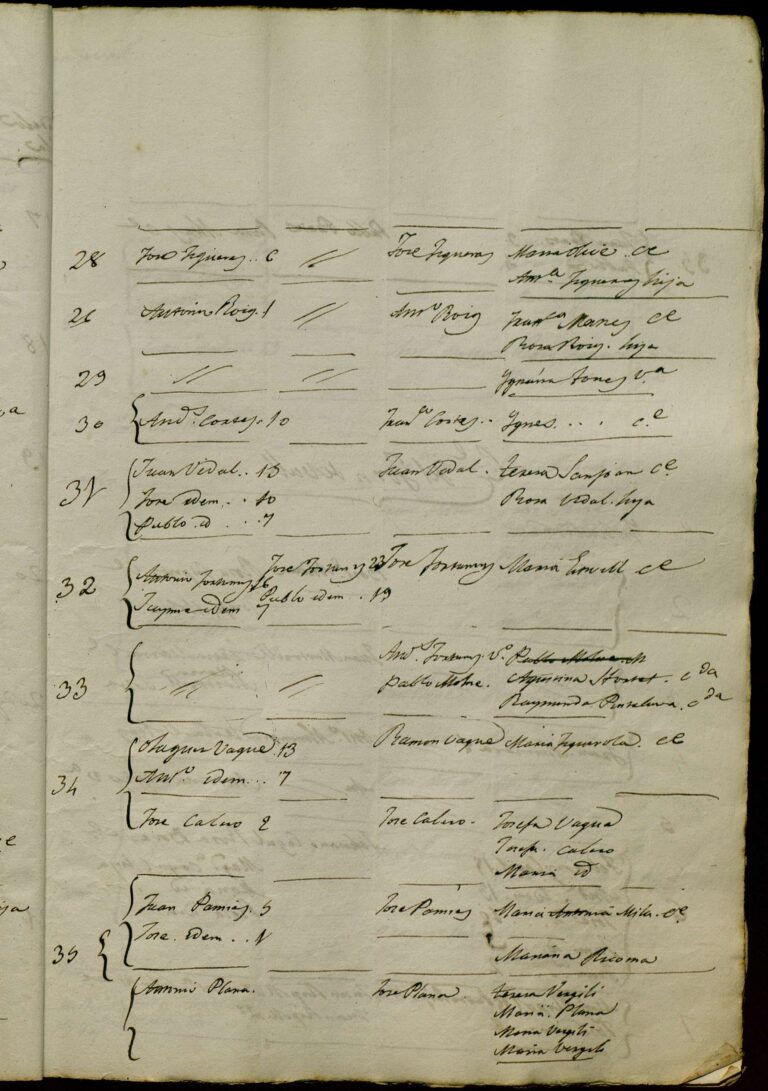 28 Jose Figueras .. 6 // Jose Figueras Maria Olivé ce
Ant.ª Figueras hija
26 Antonio Roig . 1 // Ant.º Roig Fran.ca Mares ce
Rosa Roig . hija
29 // // Ygnacia Fones v.a
30 And.s Cortes . 10 Fran.co Cortes .. Ygnes . . . c.e
31 Juan Vidal .. 13 Juan Vidal . Teresa Sanjoan c.e
Jose idem . . 10 Rosa Vidal . hija
Pablo id . . . 7
32 Antonio Fortuny 16 Jose Fortuny 23 Jose Fortuny Maria ce
Jayme idem 7 Pablo idem . 19
And.s Fortuny v.º
33 // // Pablo Agustina . c.da
Raymunda . c.da
34 Olaguer Vaqué 13 Ramon Vaqué Maria Figuerola . ce
Ant.º idem .. 7
Jose Calero 2 Jose Calero . Josefa Vaqué
Josefa . Calero
Maria id
35 Juan Pamies . 5 Jose Pamies Maria Antonia Mila . c.e
Jose . idem . . 1
Mariana Ricoma
Antonio Plana . Jose Plana Teresa Vergili
Maria . Plana
Maria Vergili
Maria Vergili